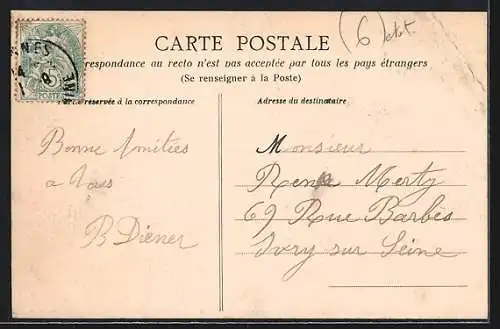 (6) 
CARTE POSTALE
respondance au recto n'est pas acceptée par tous les pays étrangers
(Se renseigner à la Poste)
réservée à la correspondance
Adresse du destinataire
NNES
POSTE
Bonne Amitiées
a Tous
B Diener
Monsieur
René Merty
69 Rue Barbès
Ivry sur Seine